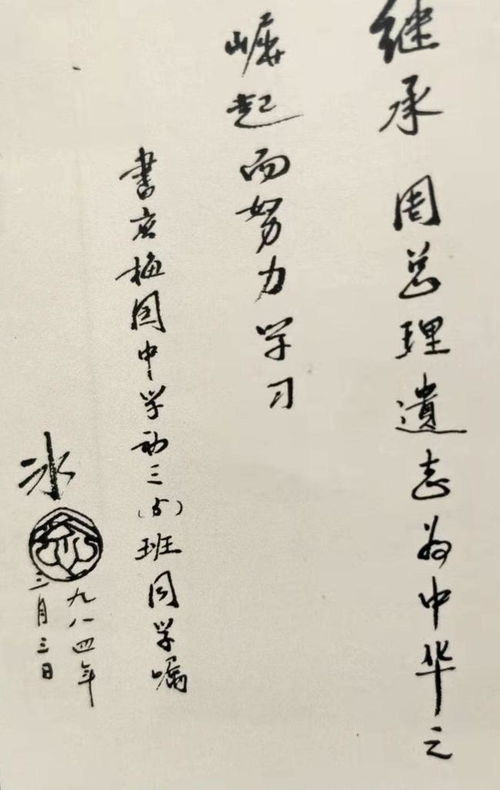 继承 周总理遗志为中华之
崛起而努力学习
書应梅园中学初三(5)班同学嘱
冰心
一九八四年
三月三日